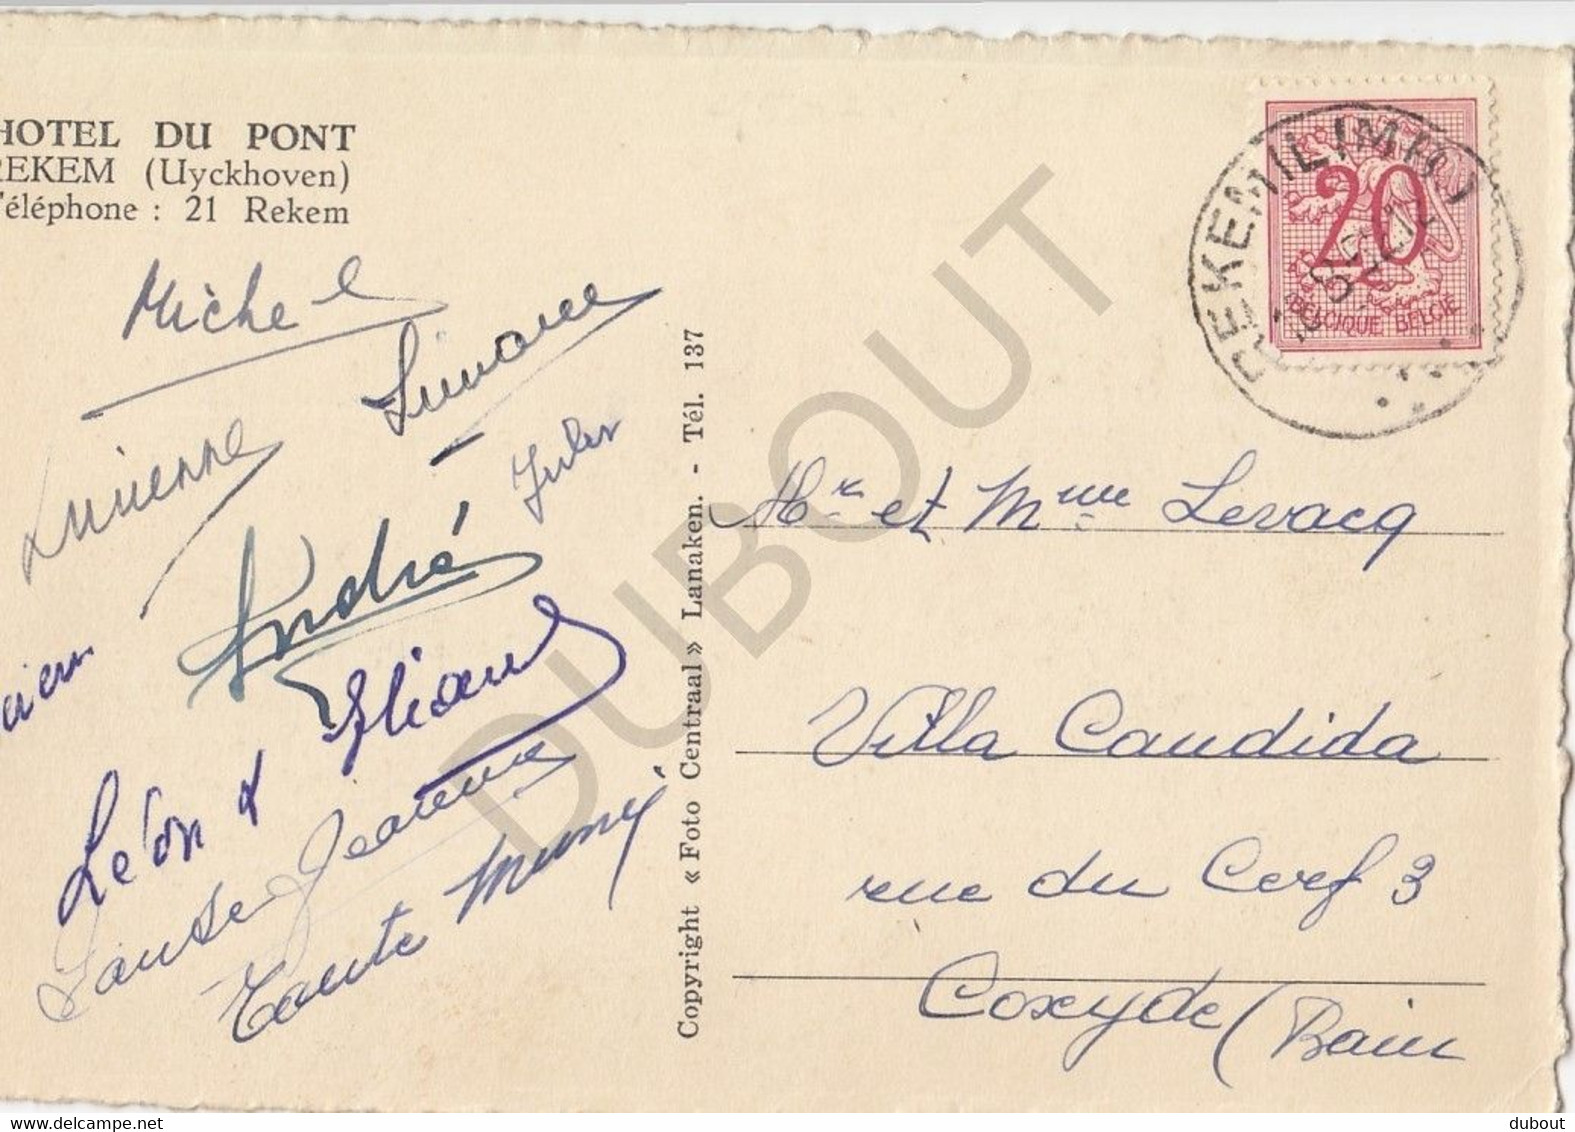 HOTEL DU PONT
REKEM (Uyckhoven)
Téléphone : 21 Rekem
Michel
Lucienne
Jules
André
Léon & Eliane
Tante Jeanne
Tante Mimy
Copyright « Foto Centraal » Lanaken. - Tél. 137
REKEM (LIMB.)
20
BELGIQUE BELGIË
Mr et Mme Levacq
Villa Candida
rue du Cerf 3
Coxyde (Bain
DUBOUT
delcampe.net
dubout